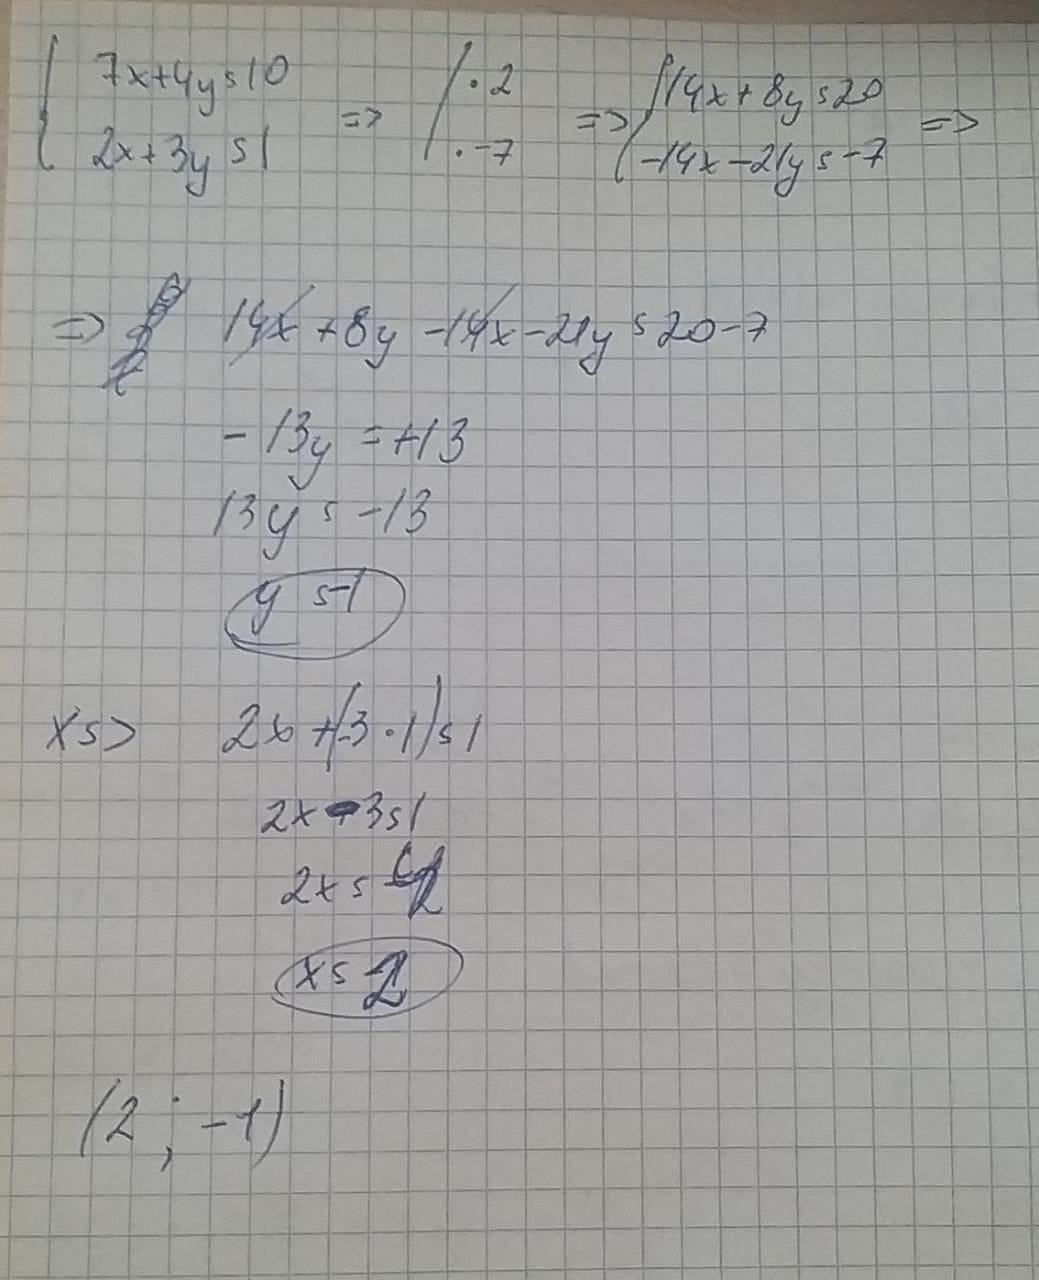 { 7x+4y=10 => { ·2 => { 14x+8y=20 =>
2x+3y=1 ·-7 -14x-21y=-7
=> 14x+8y-14x-21y=20-7
-13y=+13
13y=-13
y=-1
x=> 2x+(-3·1)=1
2x-3=1
2x=
x=2
(2;-1)